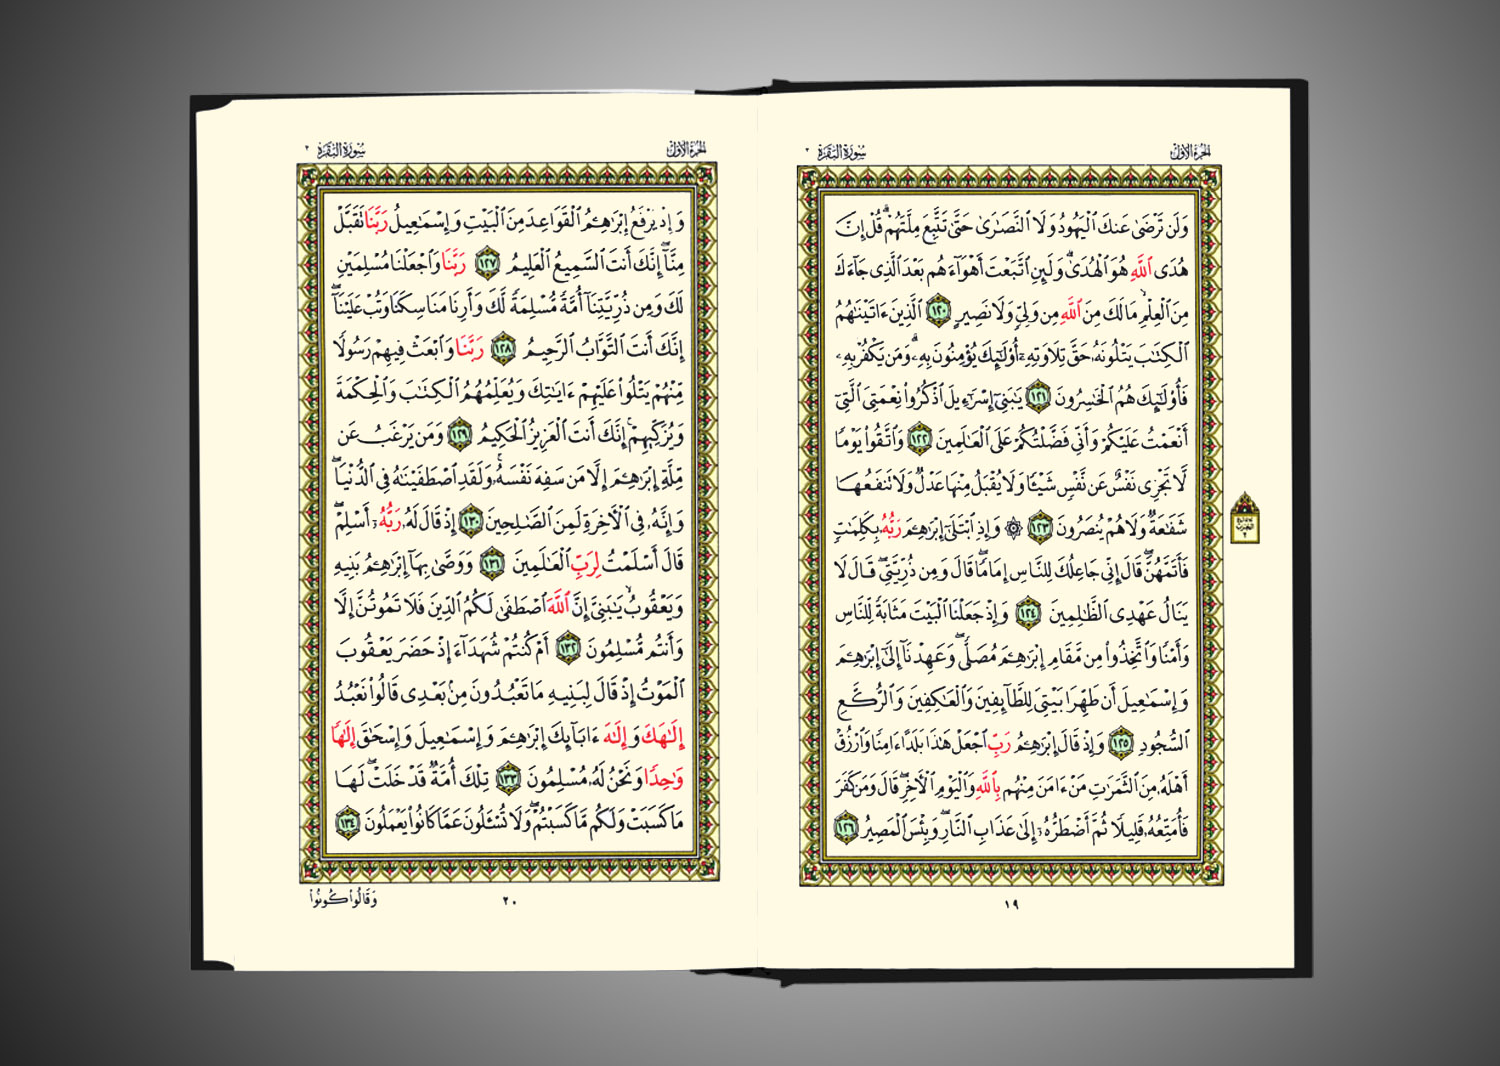 الجزء الأول
سورة البقرة ٢
وَلَن تَرْضَىٰ عَنكَ ٱلْيَهُودُ وَلَا ٱلنَّصَٰرَىٰ حَتَّىٰ تَتَّبِعَ مِلَّتَهُمْ ۗ قُلْ إِنَّ
هُدَى ٱللَّهِ هُوَ ٱلْهُدَىٰ ۗ وَلَئِنِ ٱتَّبَعْتَ أَهْوَآءَهُم بَعْدَ ٱلَّذِى جَآءَكَ
مِنَ ٱلْعِلْمِ ۙ مَا لَكَ مِنَ ٱللَّهِ مِن وَلِىٍّ وَلَا نَصِيرٍ ١٢٠ ٱلَّذِينَ ءَاتَيْنَٰهُمُ
ٱلْكِتَٰبَ يَتْلُونَهُۥ حَقَّ تِلَاوَتِهِۦٓ أُو۟لَٰٓئِكَ يُؤْمِنُونَ بِهِۦ ۗ وَمَن يَكْفُرْ بِهِۦ
فَأُو۟لَٰٓئِكَ هُمُ ٱلْخَٰسِرُونَ ١٢١ يَٰبَنِىٓ إِسْرَٰٓءِيلَ ٱذْكُرُوا۟ نِعْمَتِىَ ٱلَّتِىٓ
أَنْعَمْتُ عَلَيْكُمْ وَأَنِّى فَضَّلْتُكُمْ عَلَى ٱلْعَٰلَمِينَ ١٢٢ وَٱتَّقُوا۟ يَوْمًا
لَّا تَجْزِى نَفْسٌ عَن نَّفْسٍ شَيْـًٔا وَلَا يُقْبَلُ مِنْهَا عَدْلٌ وَلَا تَنفَعُهَا
شَفَٰعَةٌ وَلَا هُمْ يُنصَرُونَ ١٢٣ ۞ وَإِذِ ٱبْتَلَىٰٓ إِبْرَٰهِـۧمَ رَبُّهُۥ بِكَلِمَٰتٍ
فَأَتَمَّهُنَّ ۖ قَالَ إِنِّى جَاعِلُكَ لِلنَّاسِ إِمَامًا ۖ قَالَ وَمِن ذُرِّيَّتِى ۖ قَالَ لَا
يَنَالُ عَهْدِى ٱلظَّٰلِمِينَ ١٢٤ وَإِذْ جَعَلْنَا ٱلْبَيْتَ مَثَابَةً لِّلنَّاسِ
وَأَمْنًا وَٱتَّخِذُوا۟ مِن مَّقَامِ إِبْرَٰهِـۧمَ مُصَلًّى ۖ وَعَهِدْنَآ إِلَىٰٓ إِبْرَٰهِـۧمَ
وَإِسْمَٰعِيلَ أَن طَهِّرَا بَيْتِىَ لِلطَّآئِفِينَ وَٱلْعَٰكِفِينَ وَٱلرُّكَّعِ
ٱلسُّجُودِ ١٢٥ وَإِذْ قَالَ إِبْرَٰهِـۧمُ رَبِّ ٱجْعَلْ هَٰذَا بَلَدًا ءَامِنًا وَٱرْزُقْ
أَهْلَهُۥ مِنَ ٱلثَّمَرَٰتِ مَنْ ءَامَنَ مِنْهُم بِٱللَّهِ وَٱلْيَوْمِ ٱلْءَاخِرِ ۖ قَالَ وَمَن كَفَرَ
فَأُمَتِّعُهُۥ قَلِيلًا ثُمَّ أَضْطَرُّهُۥٓ إِلَىٰ عَذَابِ ٱلنَّارِ ۖ وَبِئْسَ ٱلْمَصِيرُ ١٢٦
١٩
الجزء الأول
سورة البقرة ٢
وَإِذْ يَرْفَعُ إِبْرَٰهِـۧمُ ٱلْقَوَاعِدَ مِنَ ٱلْبَيْتِ وَإِسْمَٰعِيلُ رَبَّنَا تَقَبَّلْ
مِنَّآ ۖ إِنَّكَ أَنتَ ٱلسَّمِيعُ ٱلْعَلِيمُ ١٢٧ رَبَّنَا وَٱجْعَلْنَا مُسْلِمَيْنِ
لَكَ وَمِن ذُرِّيَّتِنَآ أُمَّةً مُّسْلِمَةً لَّكَ وَأَرِنَا مَنَاسِكَنَا وَتُبْ عَلَيْنَآ ۖ
إِنَّكَ أَنتَ ٱلتَّوَّابُ ٱلرَّحِيمُ ١٢٨ رَبَّنَا وَٱبْعَثْ فِيهِمْ رَسُولًا
مِّنْهُمْ يَتْلُوا۟ عَلَيْهِمْ ءَايَٰتِكَ وَيُعَلِّمُهُمُ ٱلْكِتَٰبَ وَٱلْحِكْمَةَ
وَيُزَكِّيهِمْ ۚ إِنَّكَ أَنتَ ٱلْعَزِيزُ ٱلْحَكِيمُ ١٢٩ وَمَن يَرْغَبُ عَن
مِّلَّةِ إِبْرَٰهِـۧمَ إِلَّا مَن سَفِهَ نَفْسَهُۥ ۚ وَلَقَدِ ٱصْطَفَيْنَٰهُ فِى ٱلدُّنْيَا ۖ
وَإِنَّهُۥ فِى ٱلْءَاخِرَةِ لَمِنَ ٱلصَّٰلِحِينَ ١٣٠ إِذْ قَالَ لَهُۥ رَبُّهُۥٓ أَسْلِمْ ۖ
قَالَ أَسْلَمْتُ لِرَبِّ ٱلْعَٰلَمِينَ ١٣١ وَوَصَّىٰ بِهَآ إِبْرَٰهِـۧمُ بَنِيهِ
وَيَعْقُوبُ يَٰبَنِىَّ إِنَّ ٱللَّهَ ٱصْطَفَىٰ لَكُمُ ٱلدِّينَ فَلَا تَمُوتُنَّ إِلَّا
وَأَنتُم مُّسْلِمُونَ ١٣٢ أَمْ كُنتُمْ شُهَدَآءَ إِذْ حَضَرَ يَعْقُوبَ
ٱلْمَوْتُ إِذْ قَالَ لِبَنِيهِ مَا تَعْبُدُونَ مِنۢ بَعْدِى قَالُوا۟ نَعْبُدُ
إِلَٰهَكَ وَإِلَٰهَ ءَابَآئِكَ إِبْرَٰهِـۧمَ وَإِسْمَٰعِيلَ وَإِسْحَٰقَ إِلَٰهًا
وَٰحِدًا وَنَحْنُ لَهُۥ مُسْلِمُونَ ١٣٣ تِلْكَ أُمَّةٌ قَدْ خَلَتْ ۖ لَهَا
مَا كَسَبَتْ وَلَكُم مَّا كَسَبْتُمْ ۖ وَلَا تُسْـَٔلُونَ عَمَّا كَانُوا۟ يَعْمَلُونَ ١٣٤
٢٠
وَقَالُوا۟ كُونُوا۟